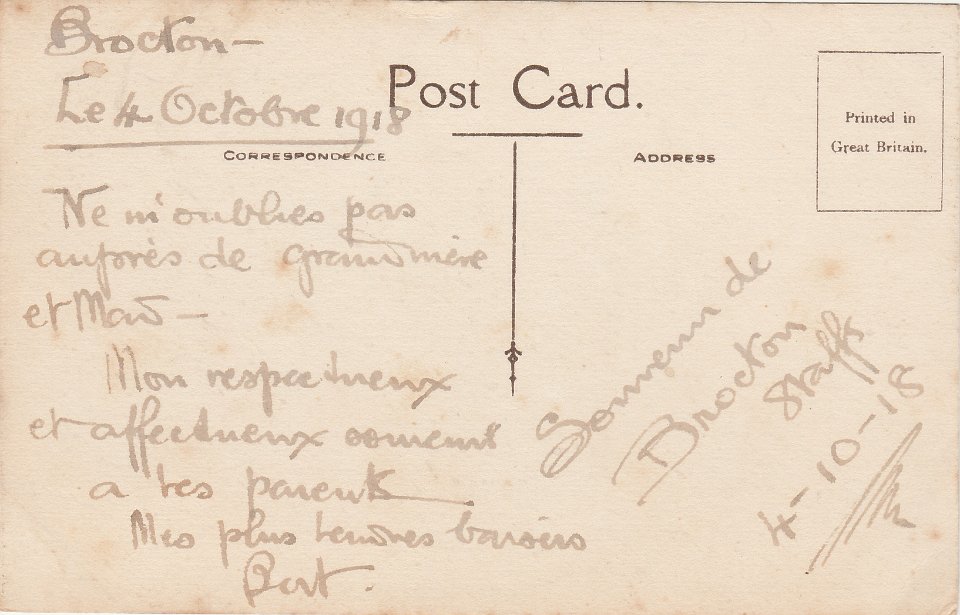 Brocton -
Le 4 Octobre 1918
Post Card.
CORRESPONDENCE
ADDRESS
Printed in
Great Britain.
Ne m'oublies pas
auprès de grandmère
et Mad -
Mon respectueux
et affectueux souvenir
a tes parents
Mes plus tendres baisers
Bert.
Souvenir de
Brocton
Staffs
4-10-18